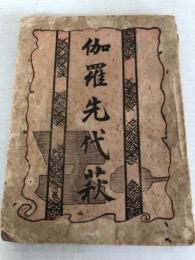 伽羅先代萩